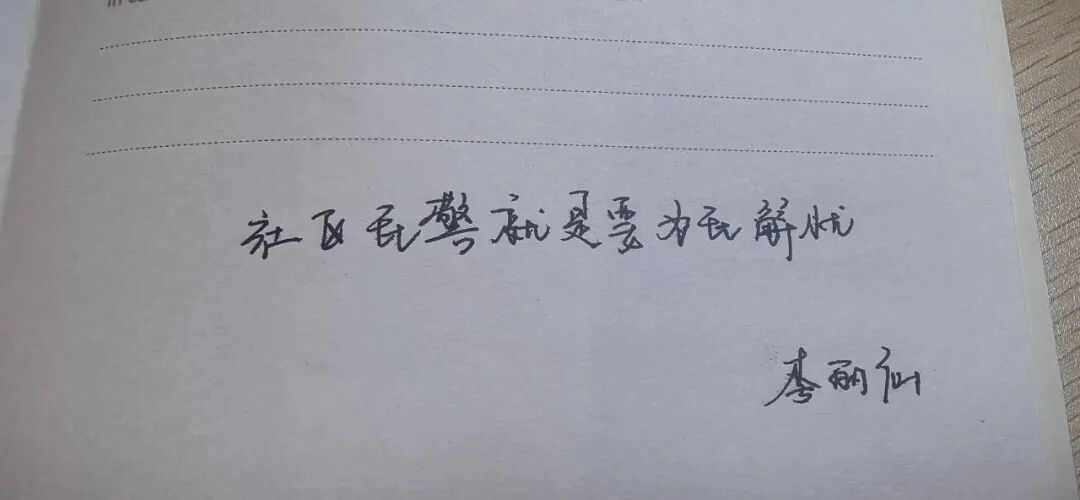 社区民警就是要为民解忧
李丽仙